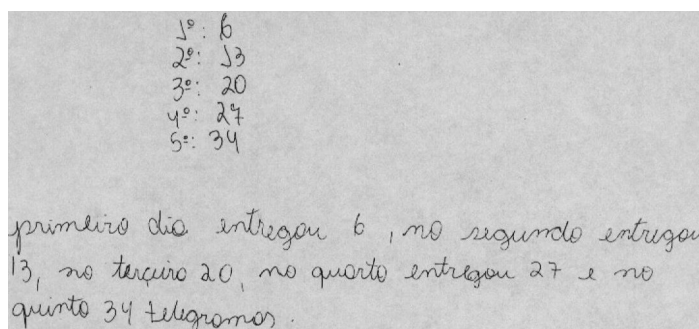 1º: 6
2º: 13
3º: 20
4º: 27
5º: 34
primeiro dia entregou 6, no segundo entregou
13, no terceiro 20, no quarto entregou 27 e no
quinto 34 telegramas.